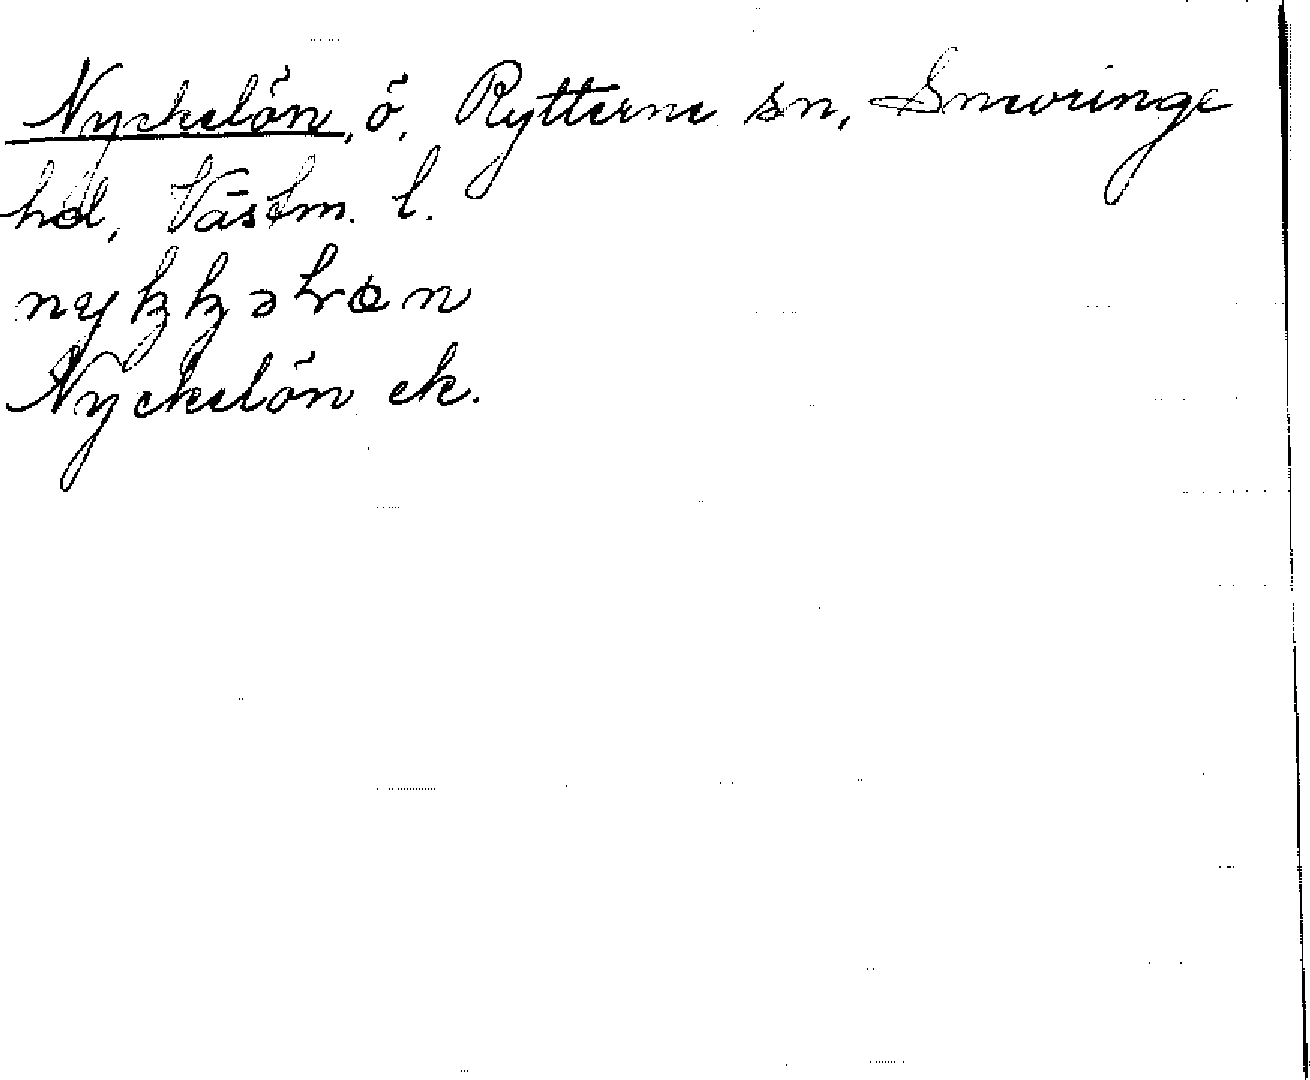 Nyckelön, ö, Rytterne sn, Snevringe
hd, Västm. l.
Nyckelön ek.